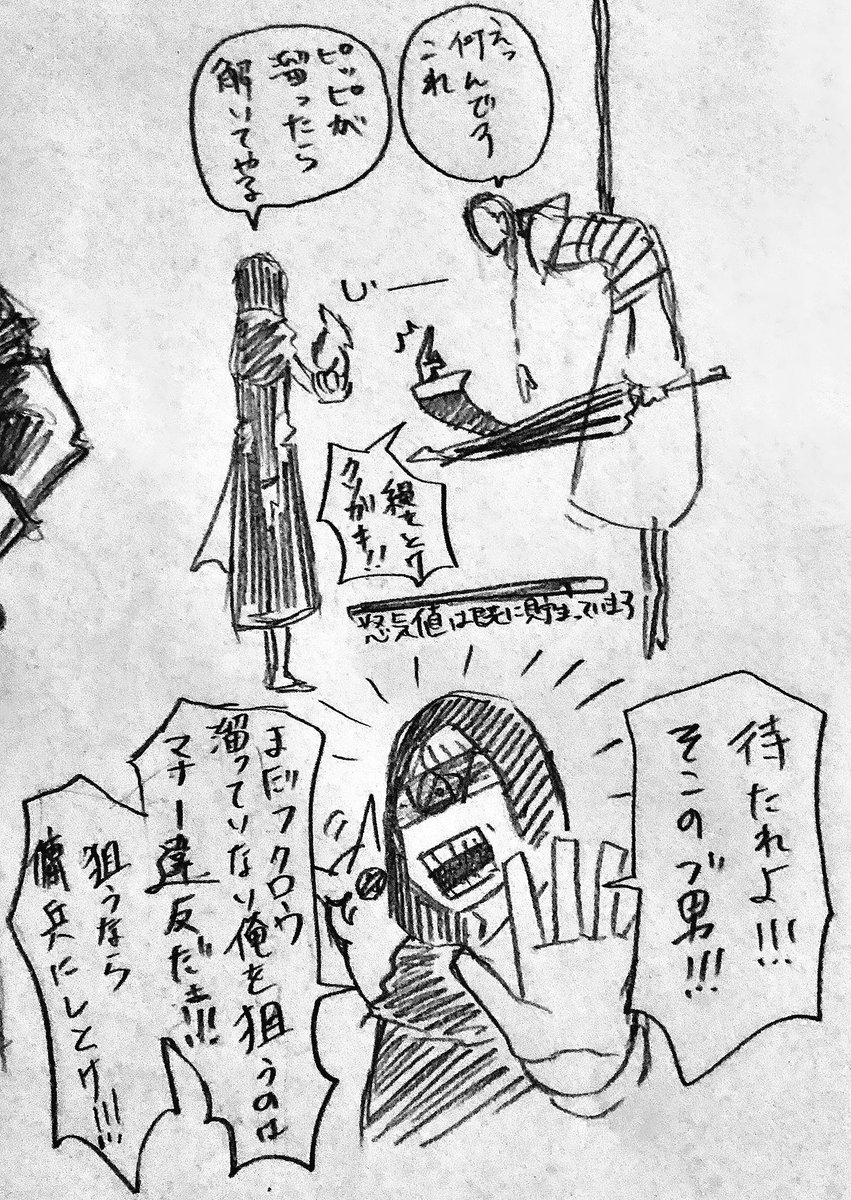 えっ
何んでる
これ
ピッピが
溜ったら
解いてやる
じー
縄をとけ
クソがキ!!
怒気値は既に貯まっている
待たれよ!!!
そこのブ男!!!
まだフクロウ
溜っていない俺を狙うのは
マナー違反だぞ!!!
狙うなら
傭兵にしとけ!!!